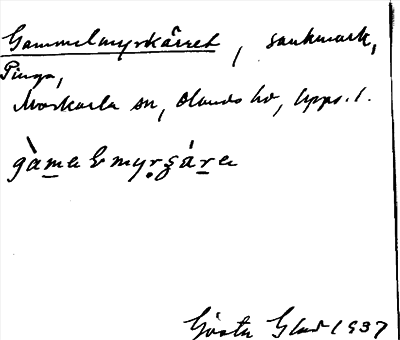 Gammelmyrkärret, sankmark,
Pinga,
Morkarla sn, Olands hd, Upps. l.
gàmalmyrʂára
Gösta Glad 1937